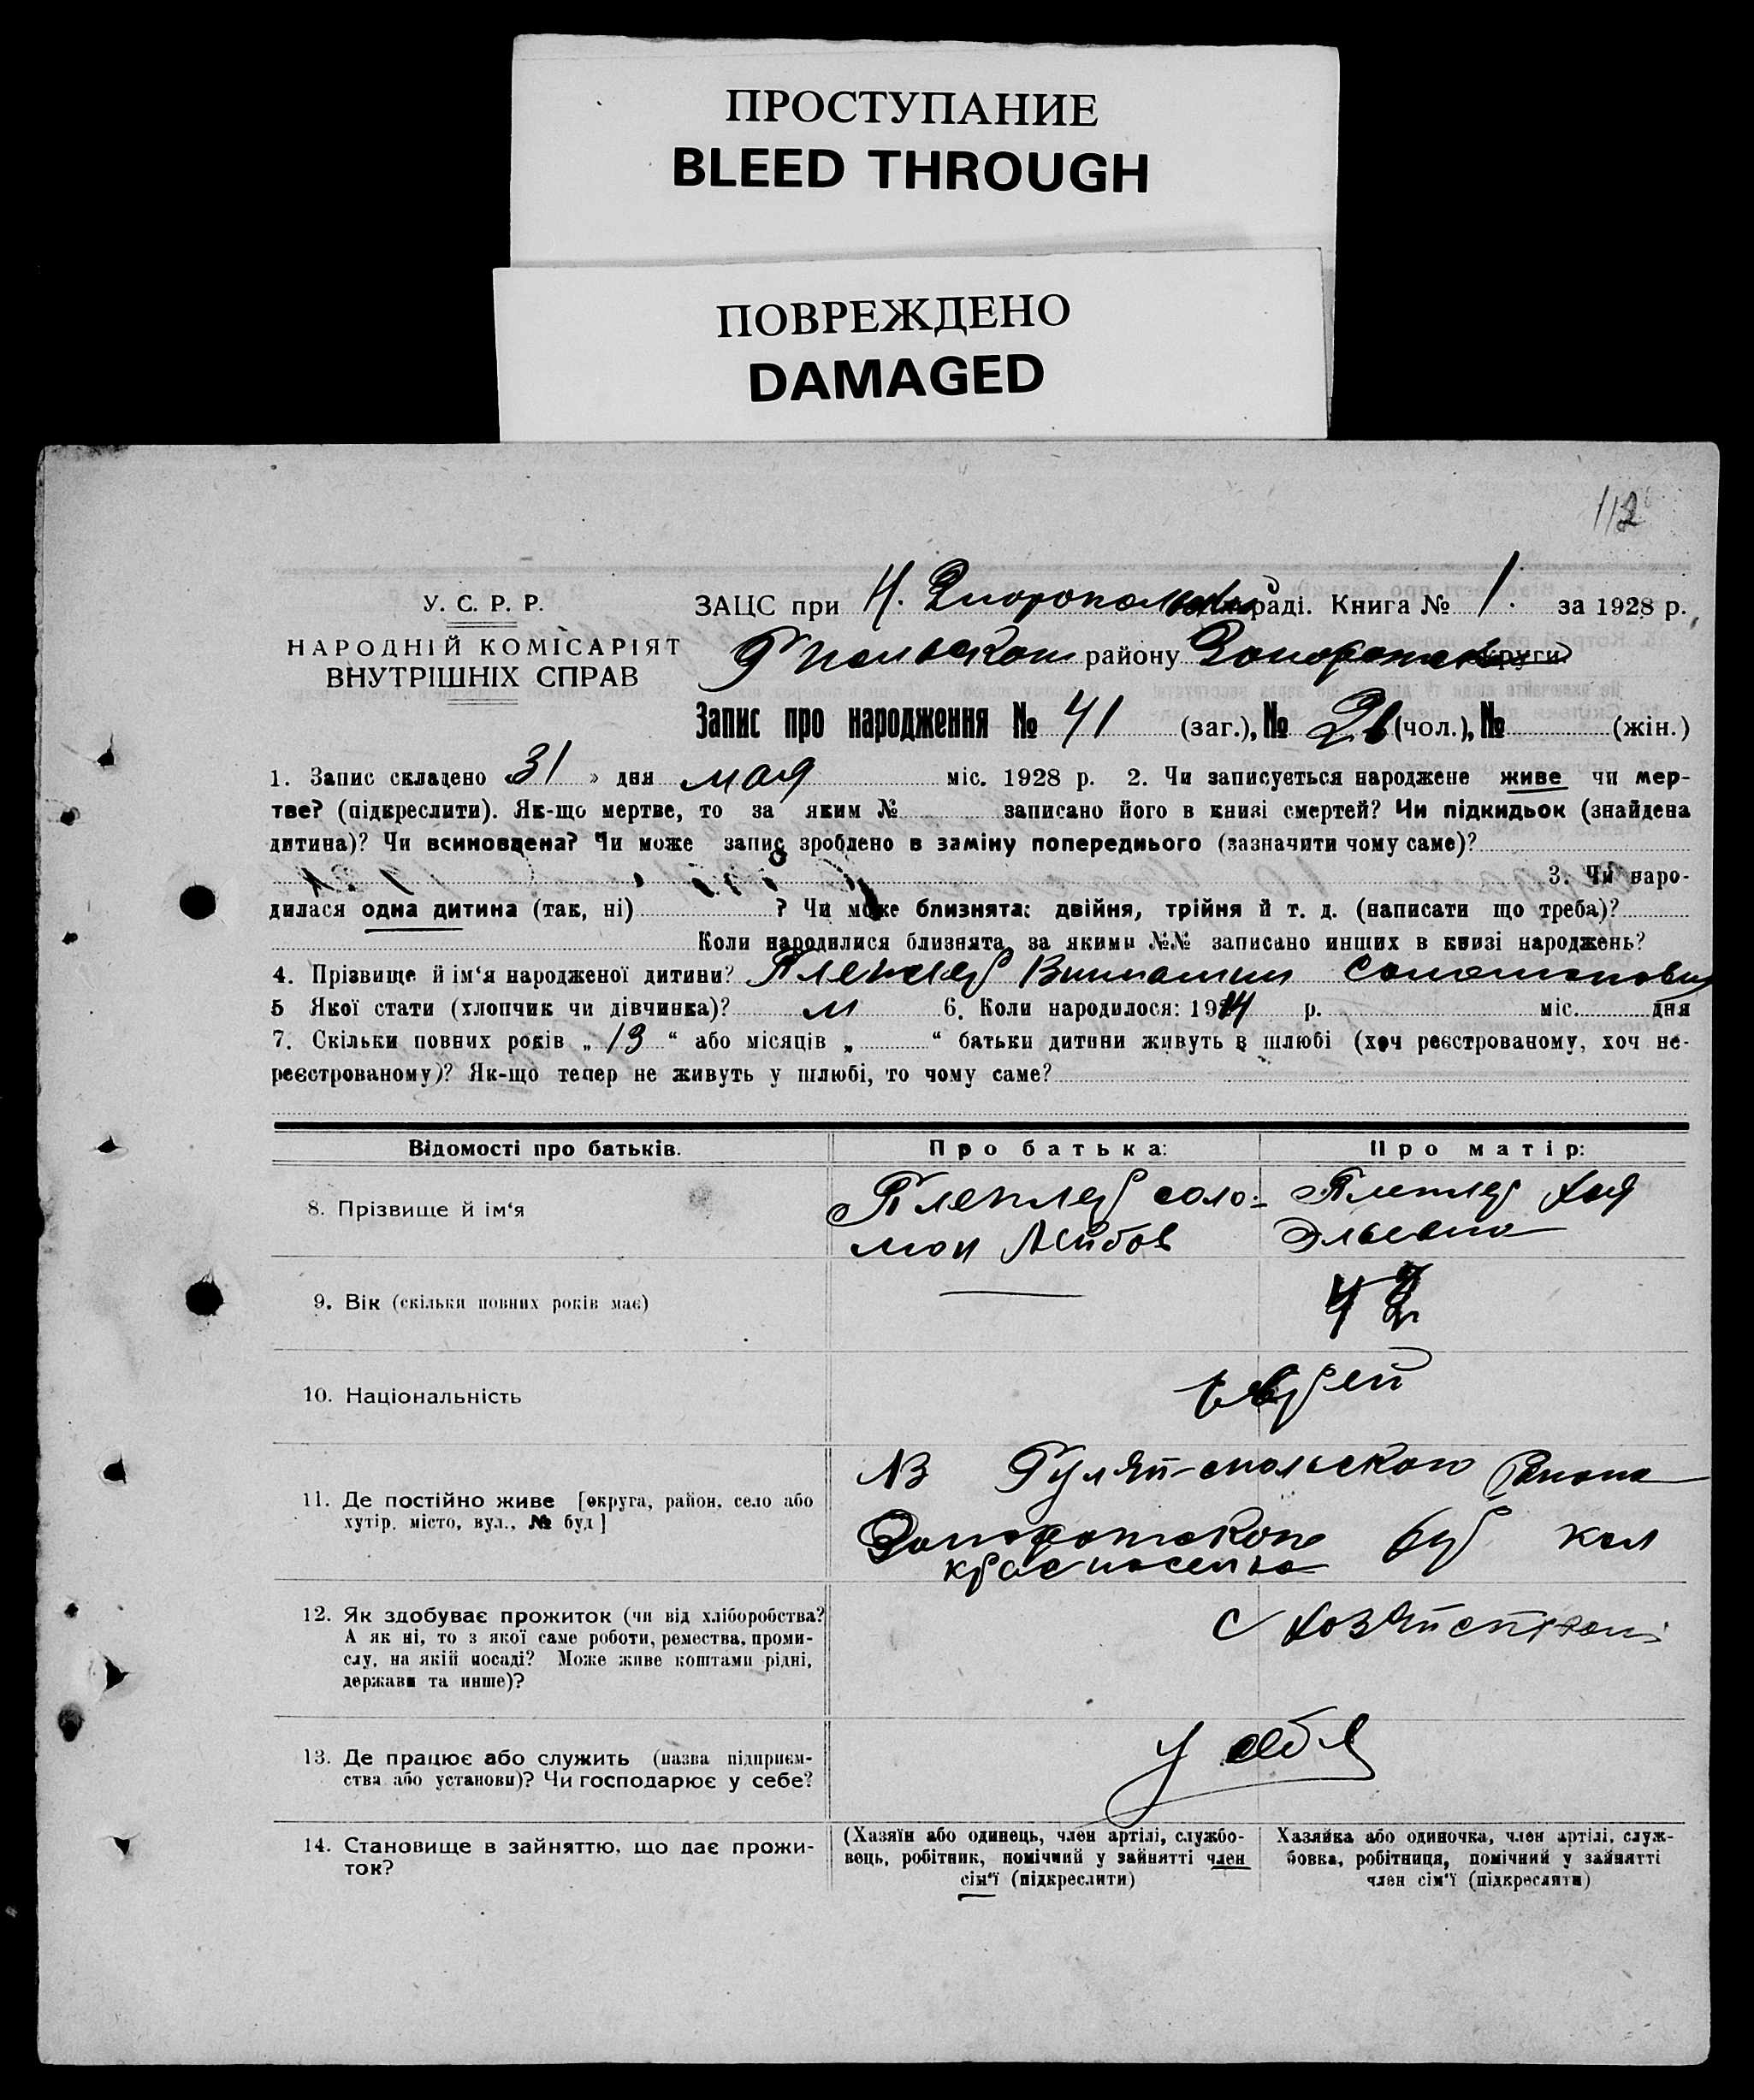 ПРОСТУПАНИЕ
BLEED THROUGH
ПОВРЕЖДЕНО
DAMAGED
112
У. С. Р. Р.
НАРОДНІЙ КОМІСАРІЯТ
ВНУТРІШНІХ СПРАВ
ЗАЦС при Н. раді. Книга № 1. за 1928 р.
району округи
Запис про народження № 41 (заг.), № 26 (чол.), № (жін.)
1. Запис складено 31 » дня мая міс. 1928 р. 2. Чи записується народжене живе чи мер-
тве? (підкреслити). Як-що мертве, то за яким № записано його в книзі смертей? Чи підкидьок (знайдена
дитина)? Чи всиновлена? Чи може запис зроблено в заміну попереднього (зазначити чому саме)?
3. Чи наро-
дилася одна дитина (так, ні) ? Чи може близнята: двійня, трійня й т. д. (написати що треба)?
Коли народилися близнята, за якими №№ записано инших в книзі народжень?
4. Прізвище й ім'я народженої дитини? Плетлер
5 Якої стати (хлопчик чи дівчинка)? м 6. Коли народилося: 1914 р. міс. дня
7. Скільки повних років „ 13 “ або місяців „ “ батьки дитини живуть в шлюбі (хоч реєстрованому, хоч не-
реєстрованому)? Як-що тепер не живуть у шлюбі, то чому саме?
Відомості про батьків. Про батька: Про матір:
8. Прізвище й ім'я
Плетлер соло- Плетлер Хая
мон Лейбов Эльевна
9. Вік (скільки повних років має) 42
10. Національність еврей
11. Де постійно живе [округа, район, село або
хутір, місто, вул., № буд]
№3 Гуляй-польского
кол
красноселка
12. Як здобуває прожиток (чи від хліборобства?
А як ні, то з якої саме роботи, ремества, проми-
слу, на якій посаді? Може живе коштами рідні,
держави та инше)?
с хозяйством
13. Де працює або служить (назва підприєм-
ства або установи)? Чи господарює у себе?
у себя
14. Становище в зайняттю, що дає прожи-
ток?
(Хазяїн або одинець, член артілі, службо-
вець, робітник, помічний у зайнятті член
сім'ї (підкреслити)
Хазяйка або одиночка, член артілі, служ-
бовка, робітниця, помічний у зайнятті
член сім'ї (підкреслити)